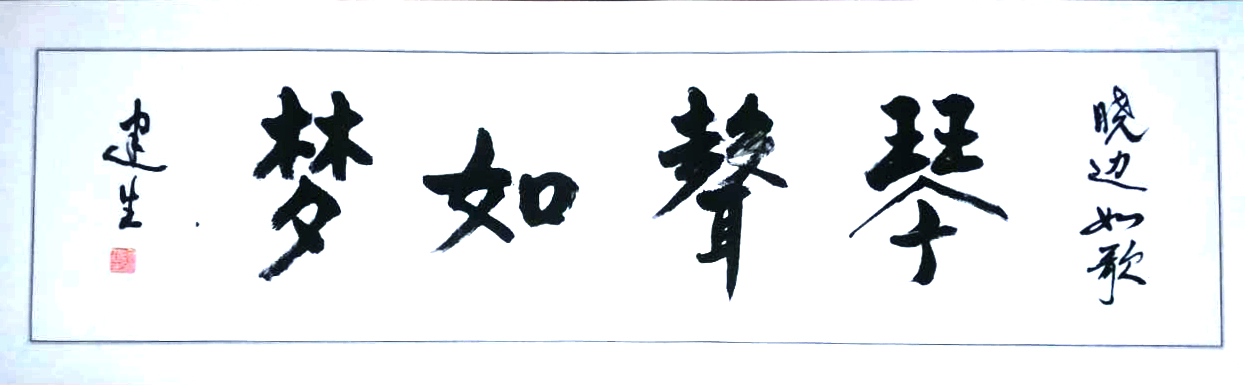 晓边如歌
琴聲如梦
建生